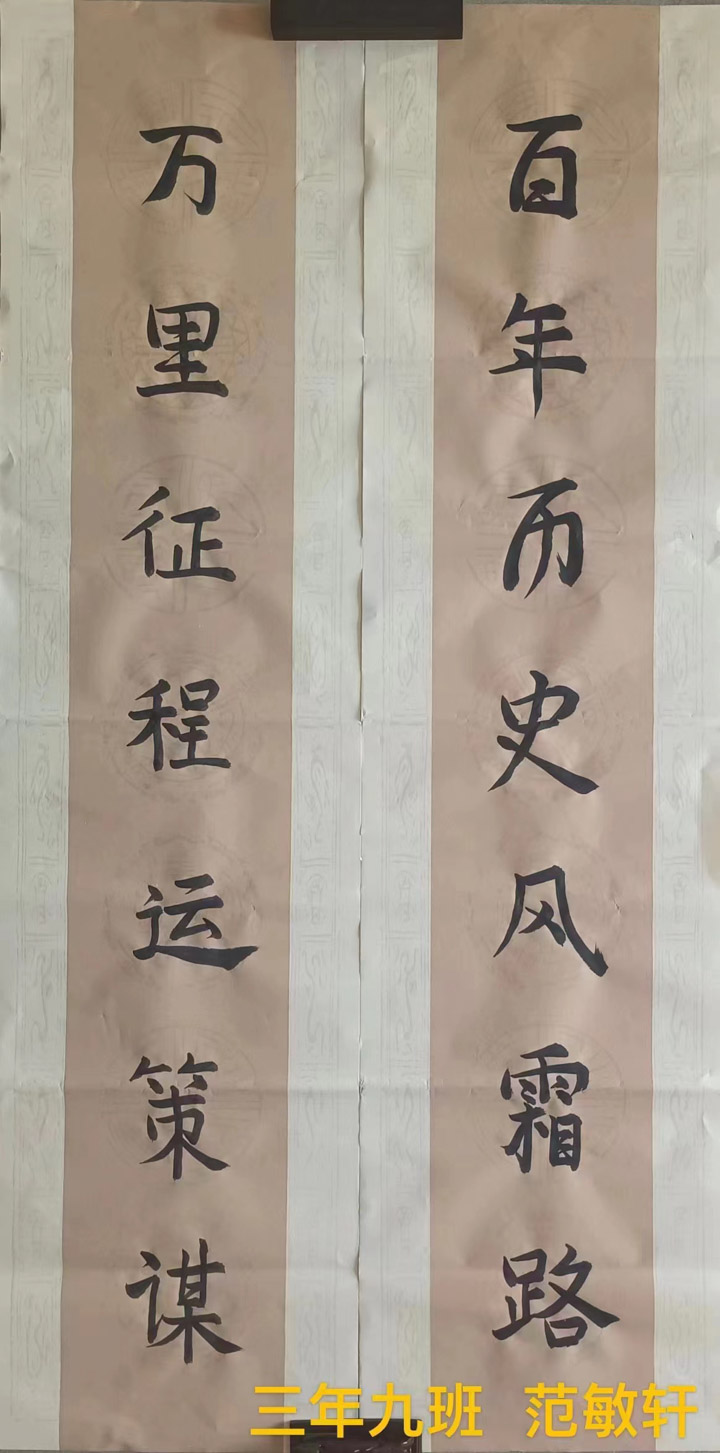 百年历史风霜路
万里征程运策谋
三年九班 范敏轩